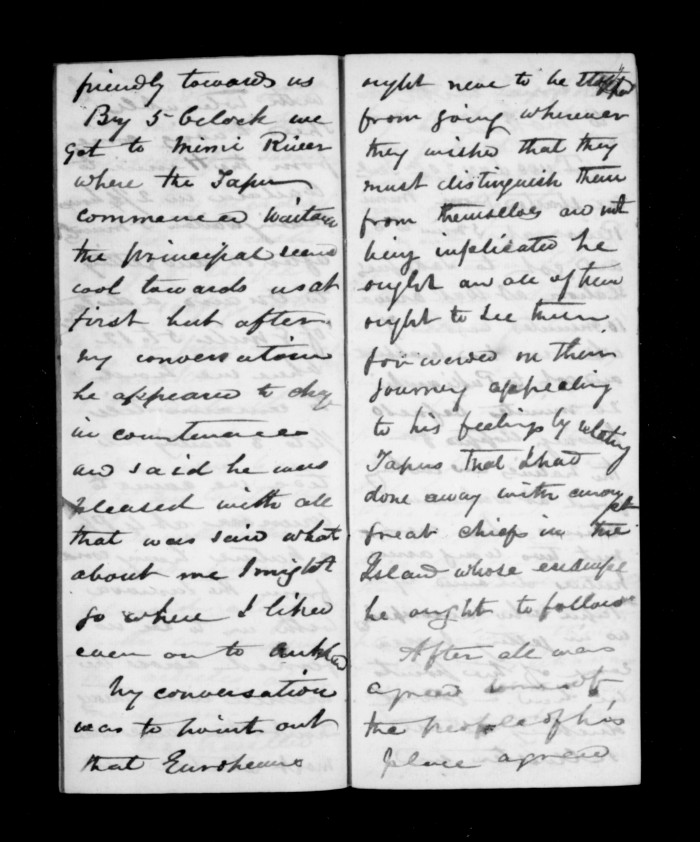 friendly towards us
By 5 Oclock we
got to Mimi River
where the Tapu
commences Waitara
the principal seems
cool towards us at
first but after
my conversation
he appeared to chg
in countenance
and said he was
pleased with all
that was said what
about me I might
go where I liked
even on to
My conversation
was to point out
that Europeans
ought never to be stopped
from going wherever
they wished that they
must distinguish them
from themselves and not
being implicated he
ought and all of them
ought to see them
forwarded on their
Journey appealing
to his feelings by relating
Tapus that I had
done away with among
great chiefs in the
Island whose example
he ought to follow
After all was
agreed
the people of his
place agreed